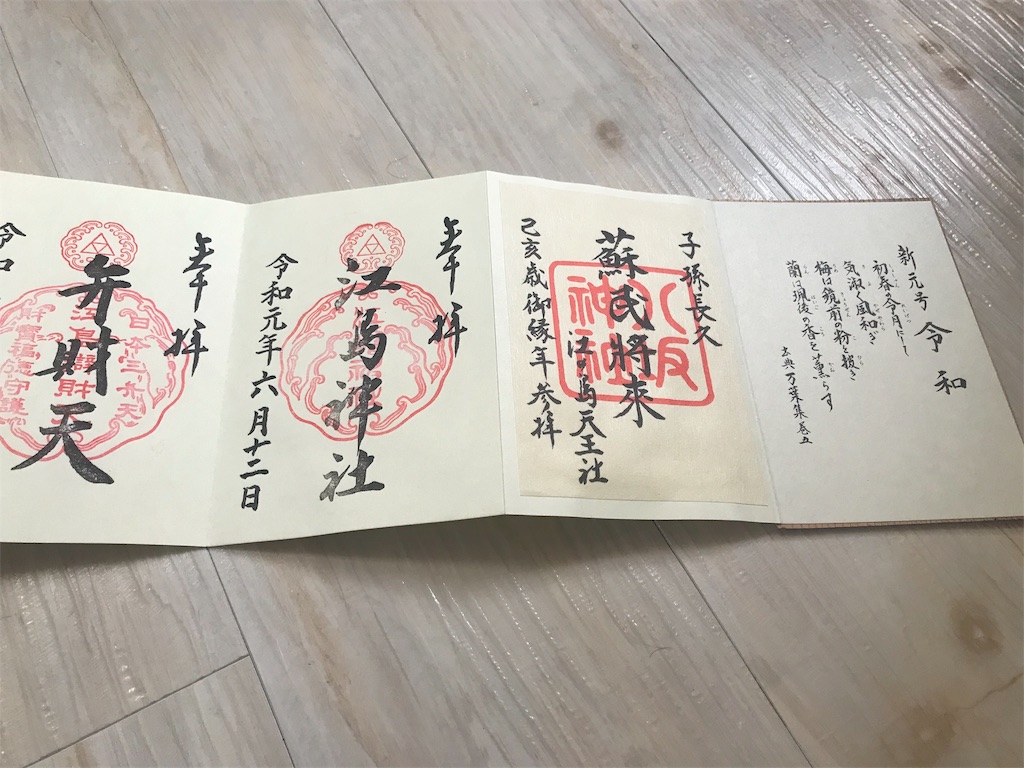 新元号
令和
初春の令月にして
気淑く風和ぎ
梅は鏡前の粉を披き
蘭は珮後の香を薫らす
出典 万葉集巻五
子孫長久
蘇民將來
八坂
神社
江ノ島天王社
己亥歳御縁年参拝
奉拝
江島神社
令和元年六月十二日
奉拝
弁財天
令和